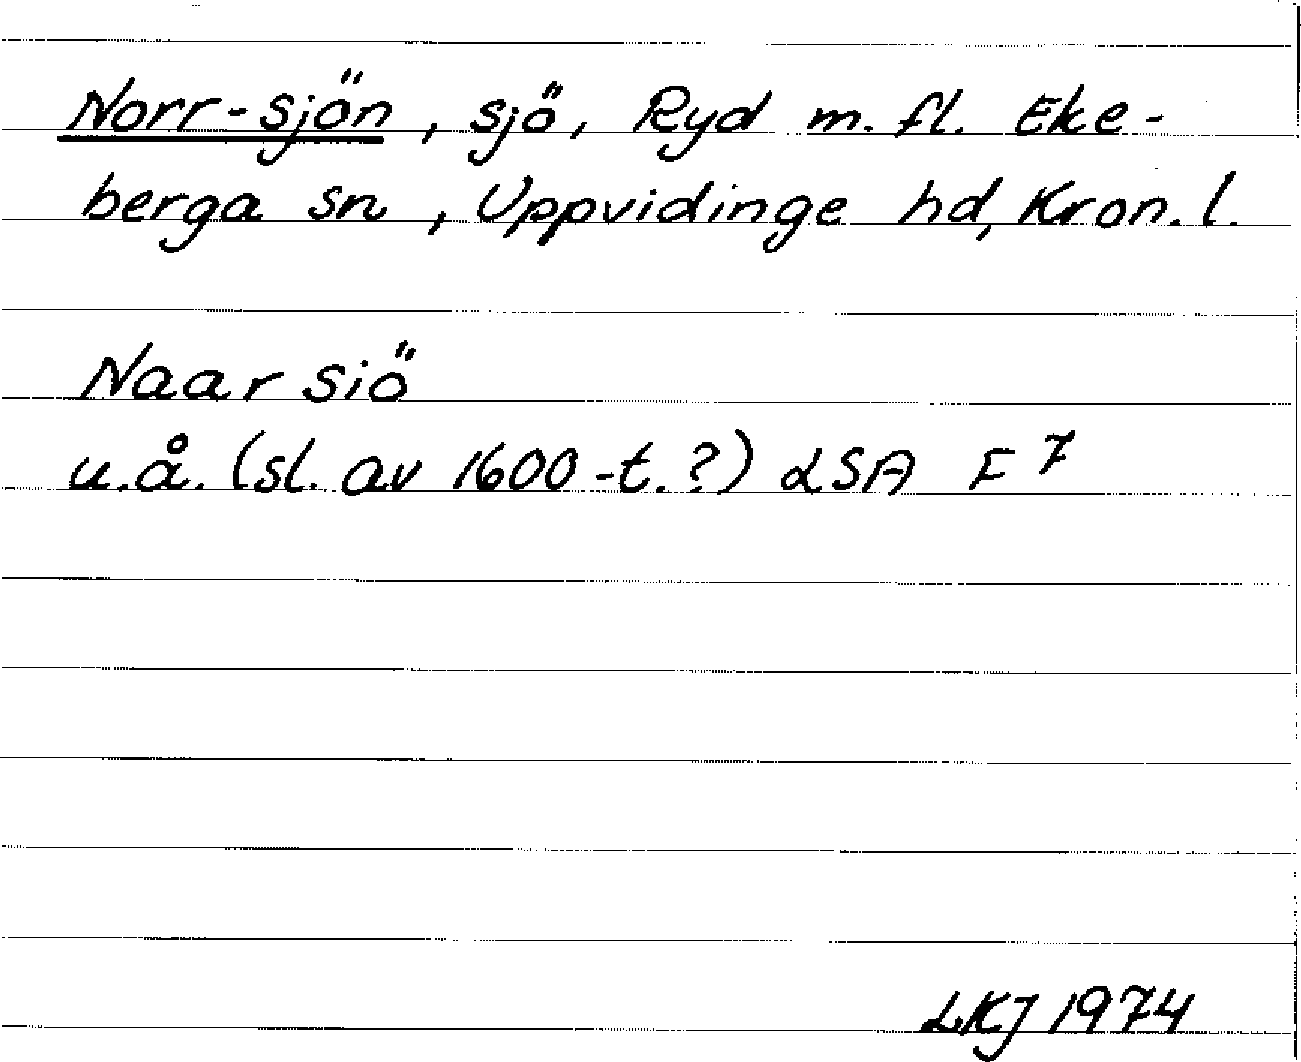 Norr-sjön, sjö, Ryd m. fl. Eke-
berga sn, Uppvidinge hd, Kron. l.
Naar siö
u.å. (sl. av 1600-t.?) LSA F 7
LKJ 1974